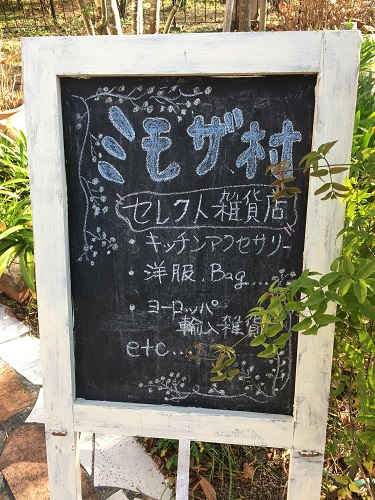 ミモザ村
セレクト雑貨店
・キッチンアクセサリー
・洋服.Bag...
・ヨーロッパ
輸入雑貨
etc...